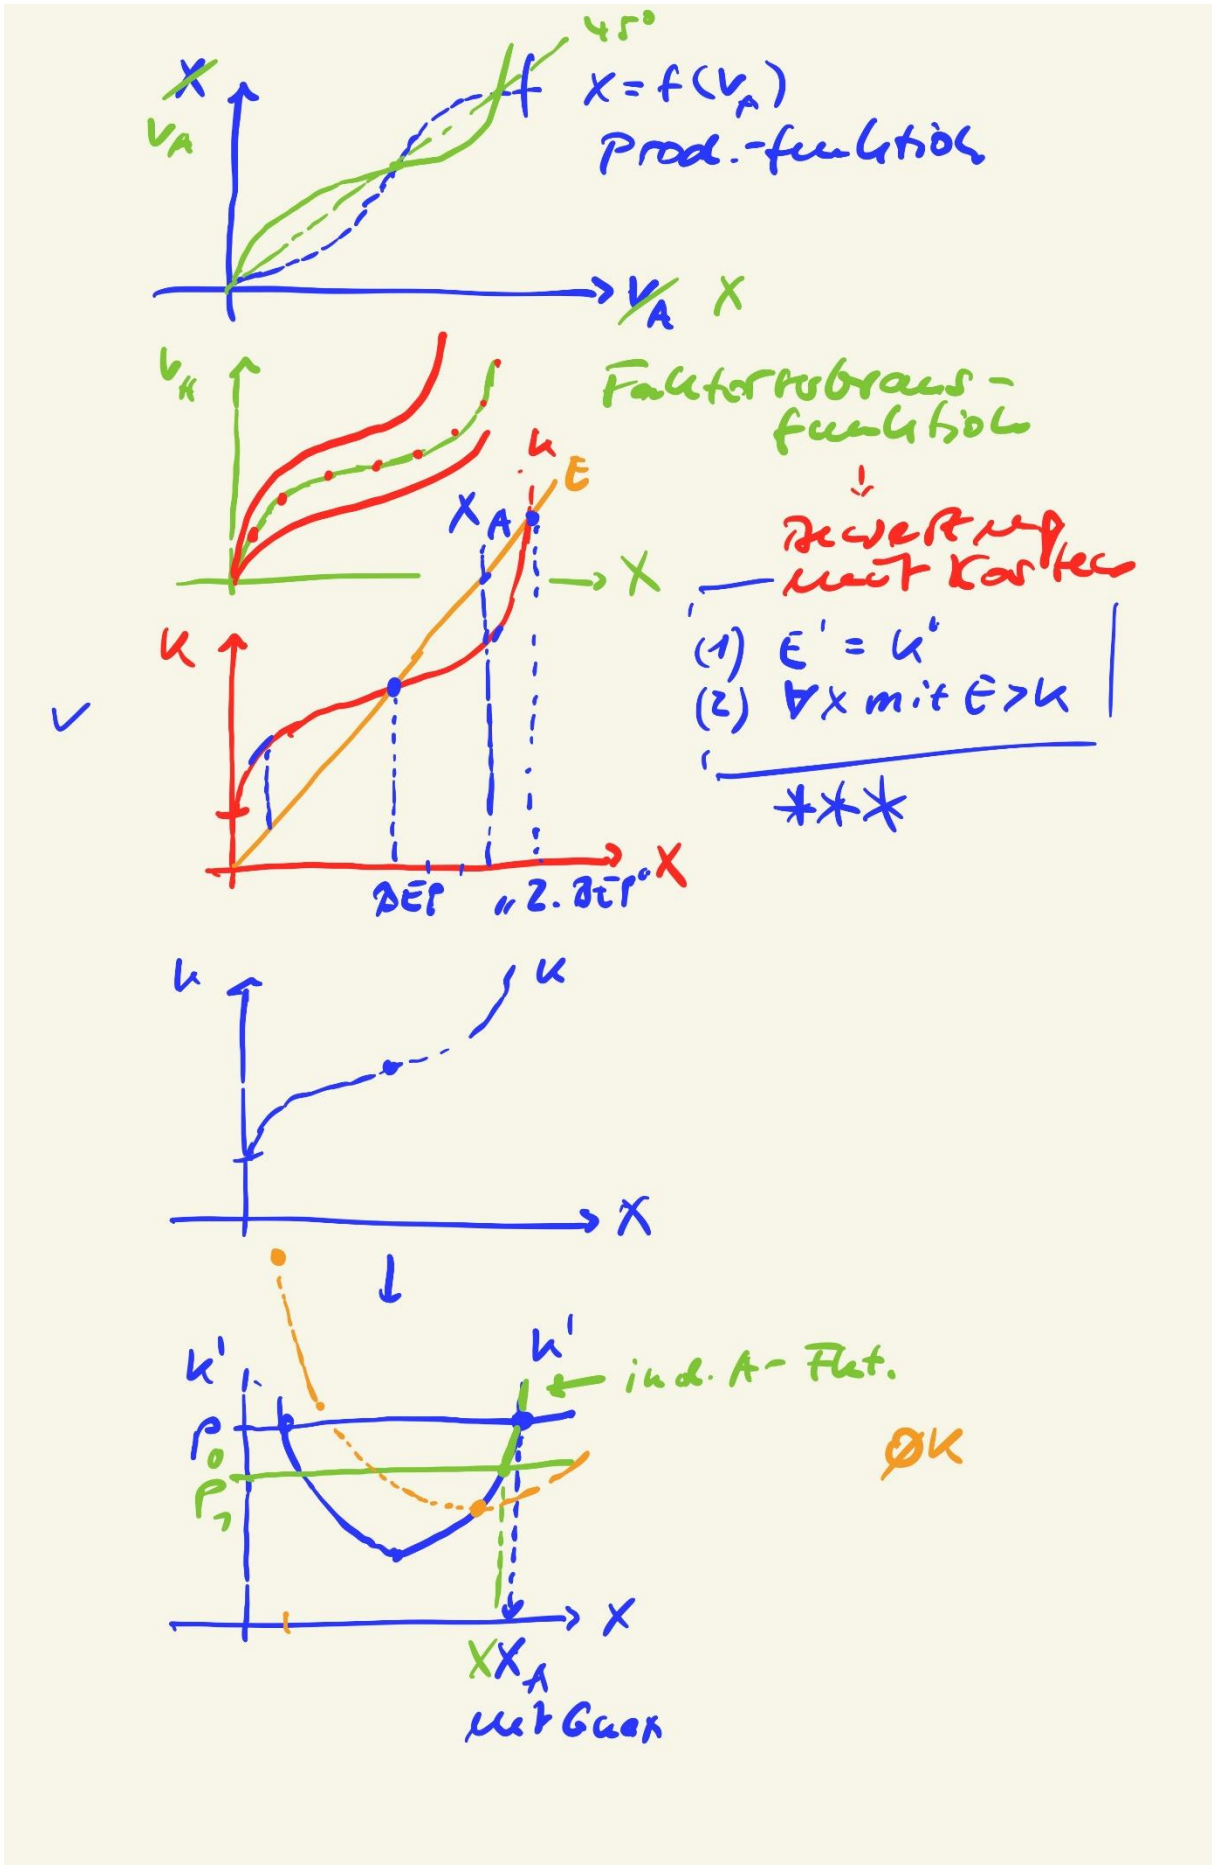 45°
X
V_A
f
X = f(V_A)
Prod.-funktion
V_A X
V_A
Faktorverbrauchs-
funktion
↓
X
Bewertung
mit Kosten
K
E
X_A
(1) E' = K'
(2) ∀ x mit E > K
***
K
X
BEP
„2. BEP"
K
K
X
↓
K'
K'
← ind. A-Fkt.
P_0
P_1
ØK
X
X X_A
mit Gmax